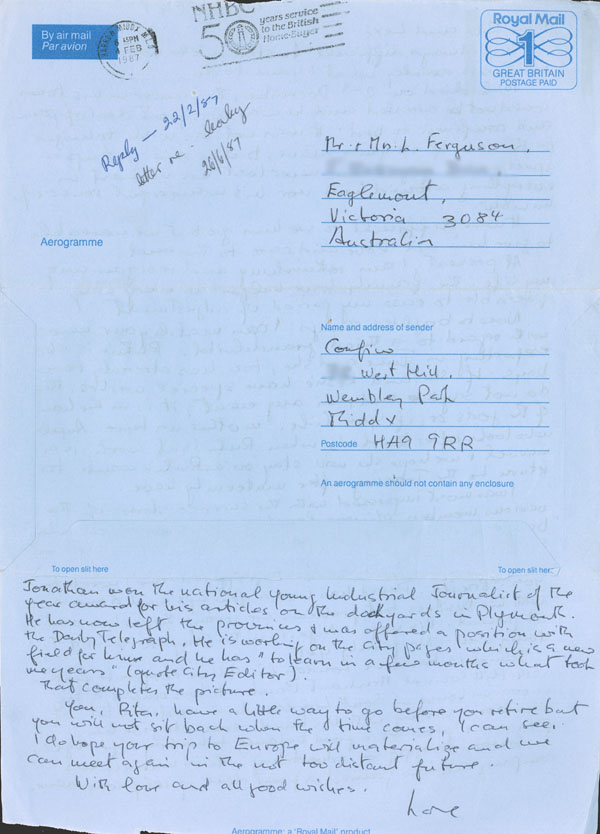 By air mail
Par avion
FEB
1987
NHBC
50
years service
to the British
Home-Buyer
Royal Mail
1
GREAT BRITAIN
POSTAGE PAID
Reply — 22/2/87
letter re.
26/6/87
Mr. & Mrs. L. Ferguson,
Eaglemont,
Victoria 3084
Australia
Aerogramme
Name and address of sender
Confino
West Hill,
Wembley Park
Middx
Postcode HA9 9RR
An aerogramme should not contain any enclosure
To open slit here
To open slit here
Jonathan won the national young Industrial Journalist of the
year award for his articles on the dockyards in Plymouth.
He has now left the provinces & was offered a position with
the Daily Telegraph. He is working on the City pages which is a new
field for him and he has "to learn in a few months what took
me years" (quote City Editor).
That completes the picture.
You, Rita, have a little way to go before you retire but
you will not sit back when the time comes, I can see.
I do hope your trip to Europe will materialize and we
can meet again in the not too distant future.
With love and all good wishes.
Aerogramme: a 'Royal Mail' product